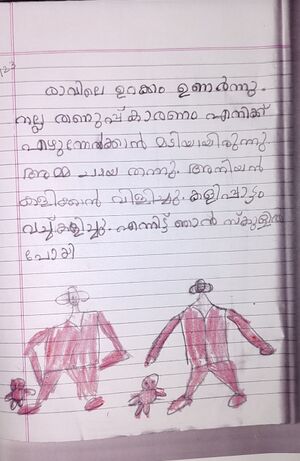 123
രാവിലെ ഉറക്കം ഉണർന്നു.
നല്ല തണുപ്പ് കാരണം എനിക്ക്
എഴുന്നേൽക്കാൻ മടിയായിരുന്നു.
അമ്മ ചായ തന്നു. അനിയൻ
കളിക്കൻ വിളിച്ചു. കളിപ്പാട്ടം
വച്ച് കളിച്ചു. എന്നിട്ട് ഞാൻ സ്കൂളിൽ
പോയി